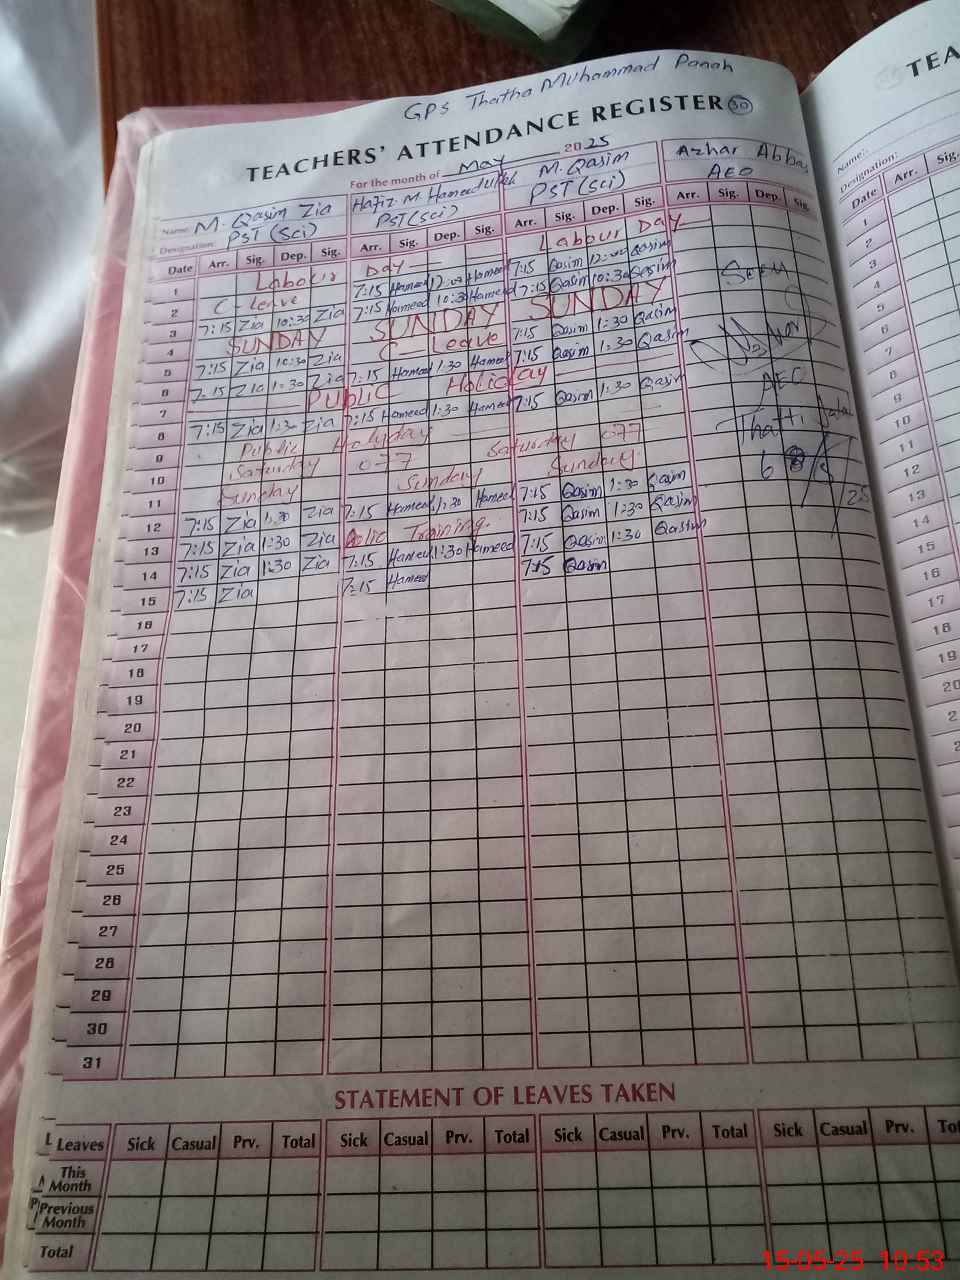 GPS Thatha Muhammad Panah
TEACHERS' ATTENDANCE REGISTER 30
For the month of May 2025
Name: M. Qasim Zia Hafiz M. Hameedullah M. Qasim Azhar Abbas
Designation: PST (Sci) PST (Sci) PST (Sci) AEO
Date Arr. Sig. Dep. Sig. Arr. Sig. Dep. Sig. Arr. Sig. Dep. Sig. Arr. Sig. Dep. Sig.
1 Labour Day Labour Day
2 C-leave 7:15 Hameed 12:00 Hameed 7:15 Qasim 12:00 Qasim
3 7:15 Zia 10:30 Zia 7:15 Hameed 10:30 Hameed 7:15 Qasim 10:30 Qasim Seen
4 SUNDAY SUNDAY SUNDAY
5 7:15 Zia 10:30 Zia C-Leave 7:15 Qasim 1:30 Qasim
6 7:15 Zia 1:30 Zia 7:15 Hameed 1:30 Hameed 7:15 Qasim 1:30 Qasim
7 PUBLIC Holiday AEO
8 7:15 Zia 1:30 Zia 7:15 Hameed 1:30 Hameed 7:15 Qasim 1:30 Qasim
9 Public Holyday Thatti
10 Saturday Saturday
11 Sunday Sunday Sunday
12 7:15 Zia 1:30 Zia 7:15 Hameed 1:30 Hameed 7:15 Qasim 1:30 Qasim 25
13 7:15 Zia 1:30 Zia Polic Training. 7:15 Qasim 1:30 Qasim
14 7:15 Zia 1:30 Zia 7:15 Hameed 1:30 Hameed 7:15 Qasim 1:30 Qasim
15 7:15 Zia 7:15 Hameed 7:15 Qasim
16
17
18
19
20
21
22
23
24
25
26
27
28
29
30
31
STATEMENT OF LEAVES TAKEN
Leaves Sick Casual Prv. Total Sick Casual Prv. Total Sick Casual Prv. Total Sick Casual Prv.
This Month
Previous Month
Total
TEA
Name:
Designation:
Date Arr. Sig.
1
2
3
4
5
6
7
8
9
10
11
12
13
14
15
16
17
18
19
20
15-05-25 10:53